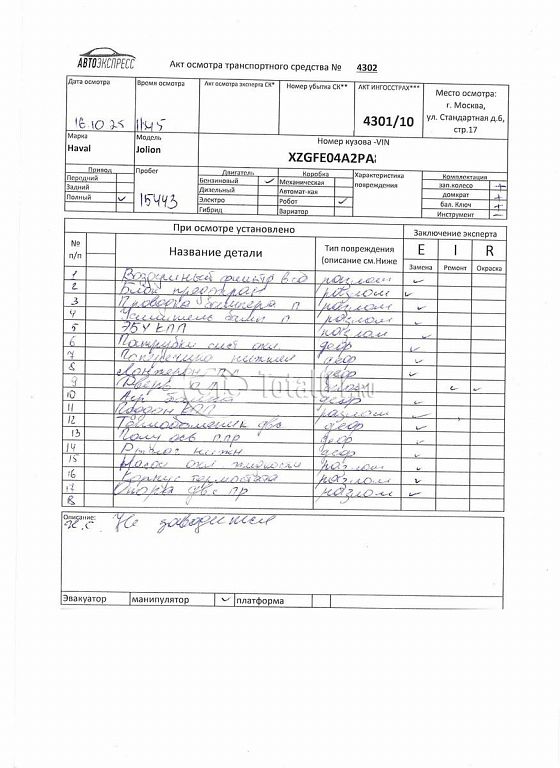 АВТОЭКСПРЕСС
Акт осмотра транспортного средства № 4302
Дата осмотра
Время осмотра
Акт осмотра эксперта СК*
Номер убытка СК**
АКТ ИНГОССТРАХ***
Место осмотра:
г. Москва,
ул. Стандартная д.6,
стр.17
16.10.25
11:45
4301/10
Марка
Модель
Номер кузова -VIN
Haval
Jolion
XZGFE04A2PA
Привод
Пробег
Двигатель
Коробка
Характеристика
повреждения
Комплектация
Передний
Бензиновый
Механическая
зап.колесо +
Задний
Дизельный
Автомат-кая
домкрат +
Полный
15443
Электро
Робот
бал. Ключ +
Гибрид
Вариатор
Инструмент -
При осмотре установлено
Заключение эксперта
№
п/п
Название детали
Тип повреждения
(описание см.Ниже
E I R
Замена
Ремонт
Окраска
1 Воздушный фильтр разлом
2 Блок предохран разлом
3 Проводка бампера п разлом
4 Усилитель балки п разлом
5 ЭБУ КПП разлом
6 Патрубки сист охл деф
7 Поперечина нижняя деф
8 Лонжерон деф
9 Дверь
10 деф
11 Поддон КПП разлом
12 Теплообменник двс деф
13 Полу ось ппр деф
14 Рычаг нижн деф
15 Насос охл жидкости разлом
16 Корпус термостата разлом
17 Опора двс пр разлом
18
Описание:
Не заводится
Эвакуатор
манипулятор
платформа